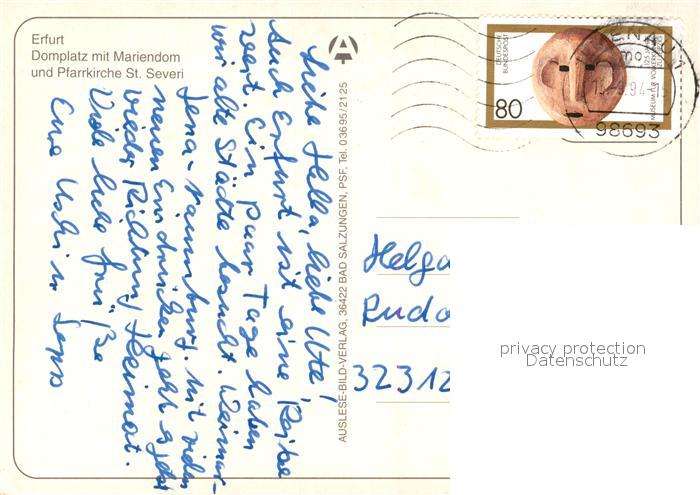 Erfurt
Domplatz mit Mariendom
und Pfarrkirche St. Severi
Liebe Helka, liebe Ute,
Auch Erfurt ist eine Reise
wert. Ein paar Tage haben
wir alte Städte besucht. Weimar-
Jena-Naumburg. Mit vielen
neuen Eindrücken geht es jetzt
wieder Richtung Heimat.
Viele liebe Grüße
Eure Uschi u. Sepp
AUSLESE-BILD-VERLAG, 36422 BAD SALZUNGEN, PSF, Tel. 03695/2125
DEUTSCHE
BUNDESPOST
80
125 JAHRE
MUSEUM FÜR VÖLKERKUNDE
ILMENAU 1
98693
Helga
Rudo
32312
privacy protection
Datenschutz